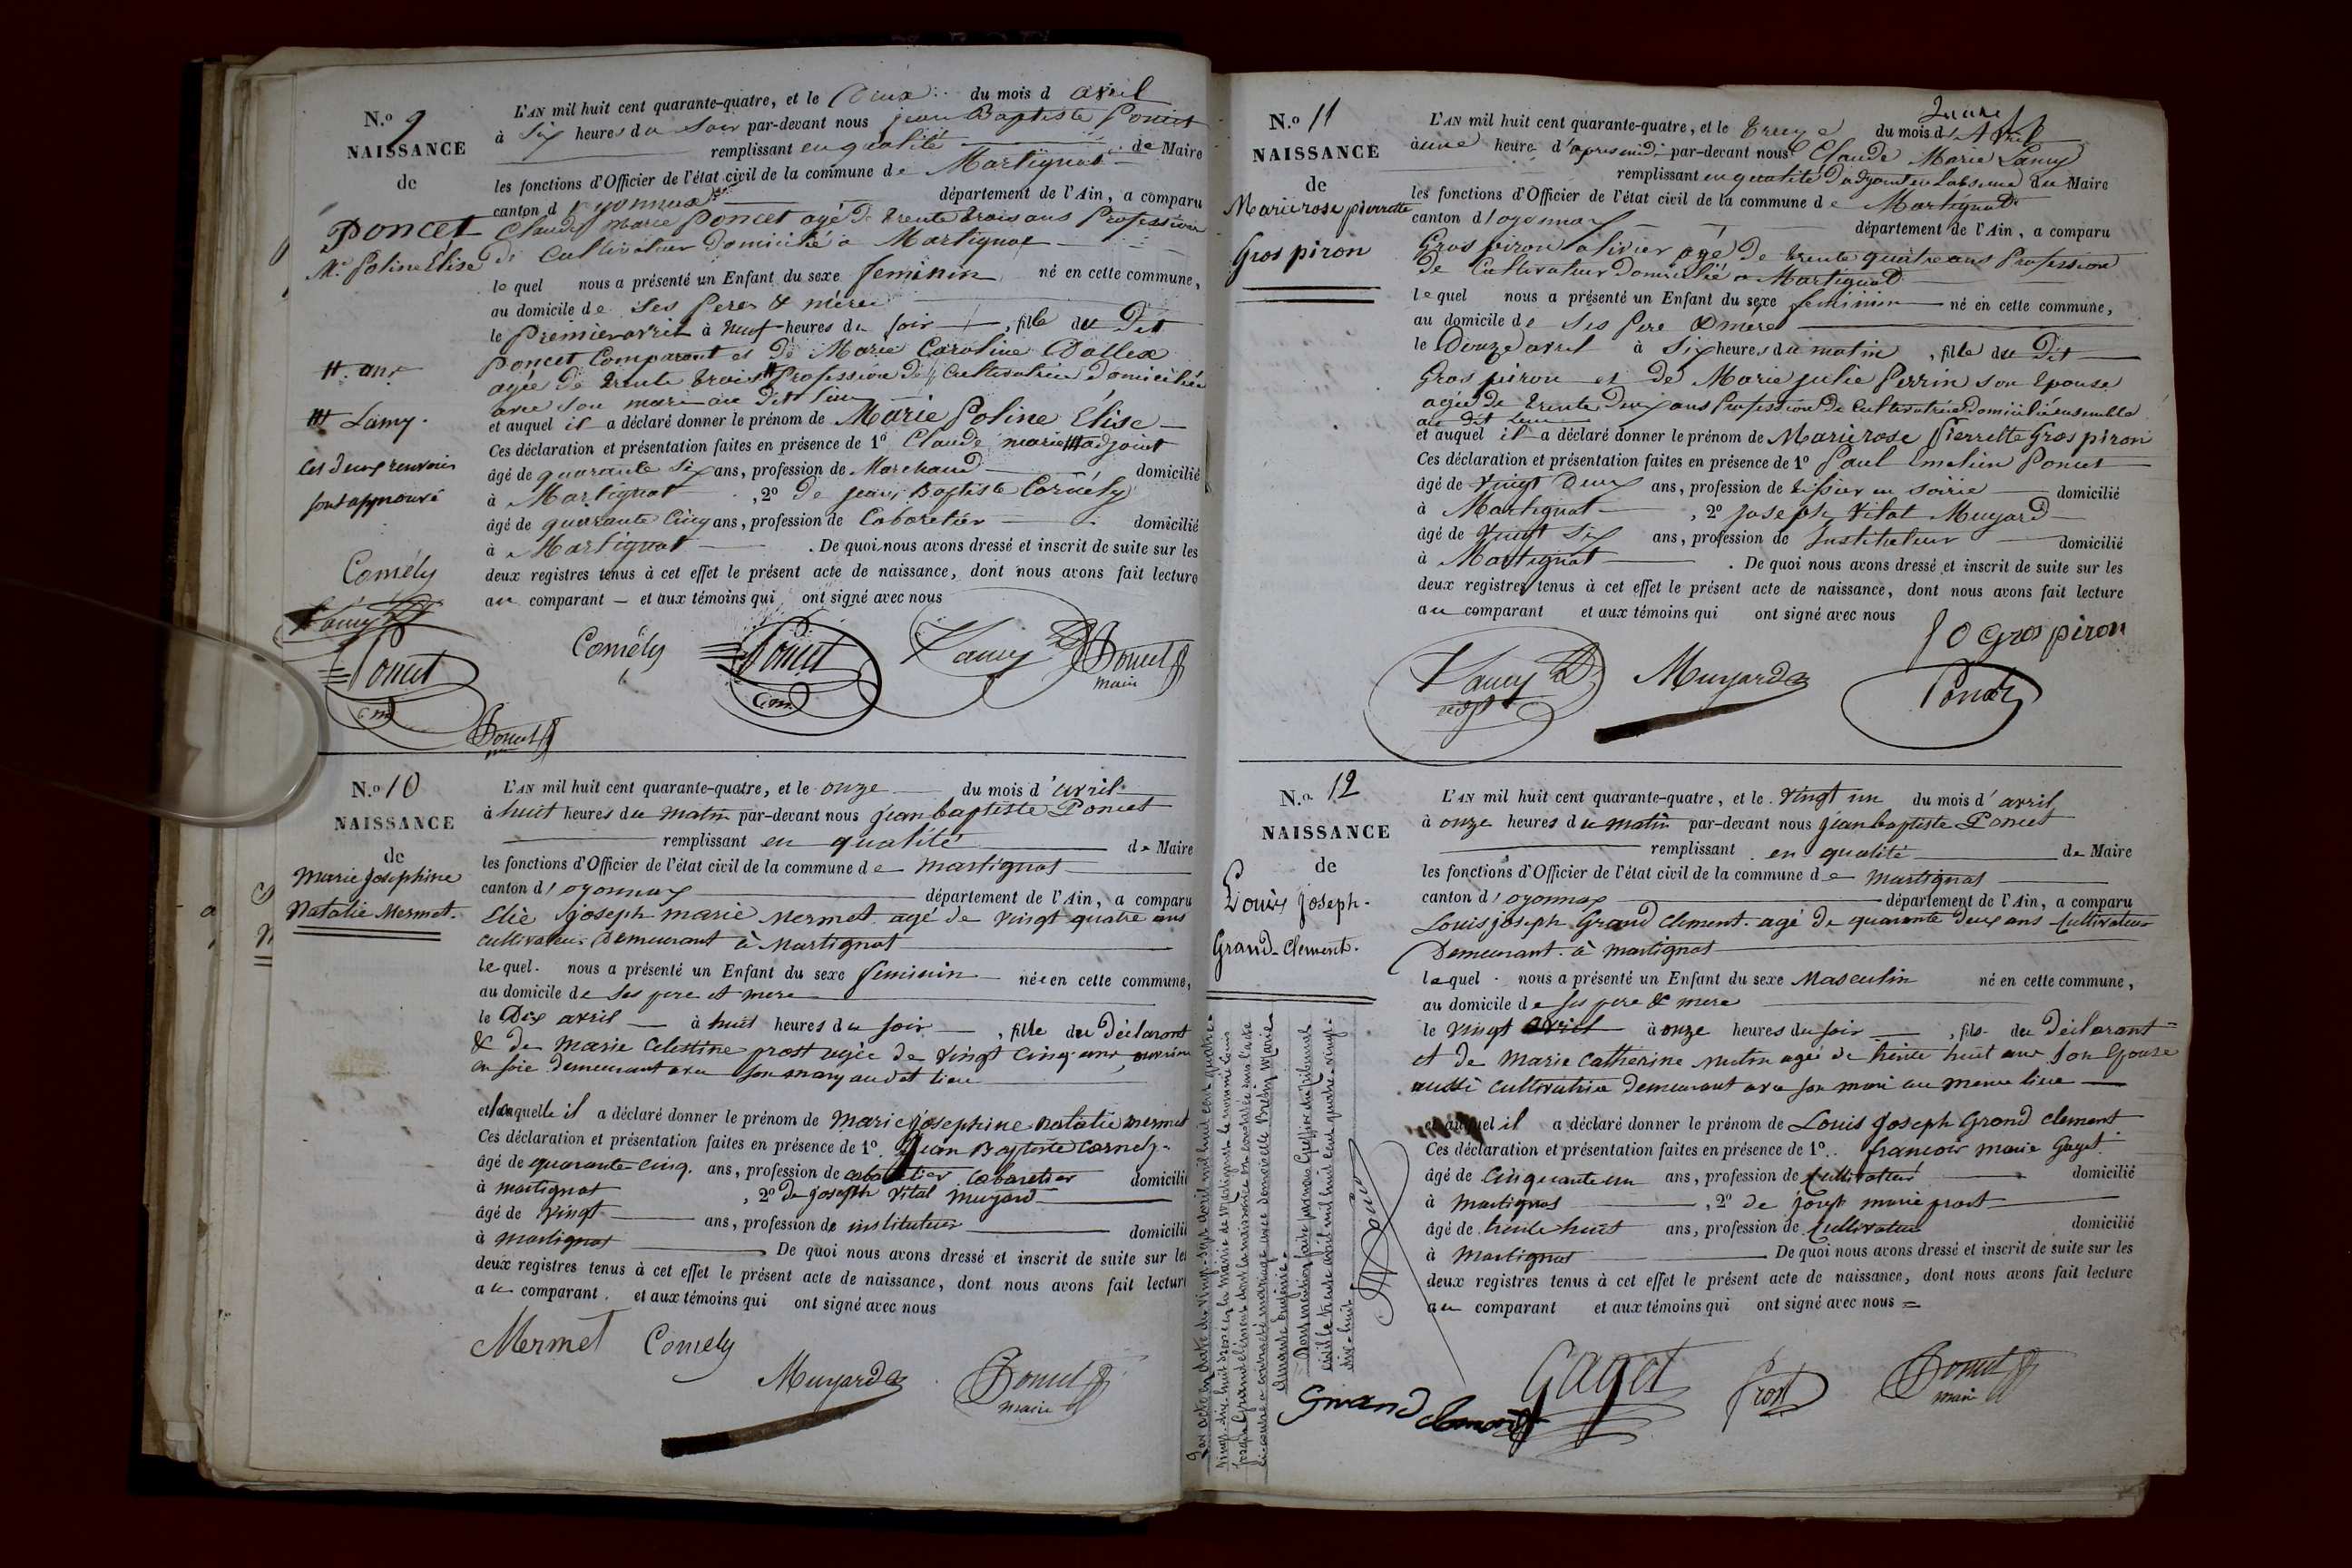 N.o 9
NAISSANCE
de
Poncet
Mie Poline Élise
L'AN mil huit cent quarante-quatre, et le Deux du mois d avril
à Six heures du Soir par-devant nous jean Baptiste Poncet
remplissant en qualité de Maire
les fonctions d'Officier de l'état civil de la commune de Martignat
canton d'oyonnax département de l'Ain, a comparu
Claude Marie Poncet agé de trente trois ans Profession
de Cultivateur domicilié à Martignat
lequel nous a présenté un Enfant du sexe feminin né en cette commune,
au domicile de Ses Pere & mere
le Premier avril à neuf heures du soir , fille du Dit
Poncet Comparant et de Marie Caroline Dallex
agée de trente trois # Profession de Cultivatrice domiciliée
avec son mari au Dit lieu
et auquel il a déclaré donner le prénom de Marie Poline Élise
Ces déclaration et présentation faites en présence de 1º Claude marie ## adjoint
âgé de quarante Six ans, profession de Marchand domicilié
à Martignat , 2º de jean Baptiste Cornély
âgé de quarante Cinq ans, profession de Cabaretier domicilié
à Martignat . De quoi nous avons dressé et inscrit de suite sur les
deux registres tenus à cet effet le présent acte de naissance, dont nous avons fait lecture
au comparant et aux témoins qui ont signé avec nous
# ans
## Lamy.
les deux renvois
sont approuvé
Cornély
Lamy
Poncet
Cm
Poncet
Cornély Poncet Lamy Poncet
Cm maire
N.o 10
NAISSANCE
de
Marie Josephine
Natalie Mermet.
L'AN mil huit cent quarante-quatre, et le onze du mois d'avril
à huit heures du matin par-devant nous jean baptiste Poncet
remplissant en qualité de Maire
les fonctions d'Officier de l'état civil de la commune de martignat
canton d'oyonnax département de l'Ain, a comparu
Elie joseph marie Mermet agé de vingt quatre ans
cultivateur Demeurant à Martignat
lequel nous a présenté un Enfant du sexe feminin née en cette commune,
au domicile de ses pere et mere
le Dix avril à huit heures du soir , fille du Déclarant
& de Marie Celestine prost agée de vingt cinq ans, ouvriere
en soie Demeurant avec son mary audit lieu
et laquelle il a déclaré donner le prénom de Marie josephine natalie mermet
Ces déclaration et présentation faites en présence de 1º. Jean Baptiste Cornely
âgé de quarante-cinq. ans, profession de cabaretier Cabaretier domicilié
à martignat , 2º de joseph Vital Muyard
âgé de vingt ans, profession de instituteur domicilié
à martignat De quoi nous avons dressé et inscrit de suite sur les
deux registres tenus à cet effet le présent acte de naissance, dont nous avons fait lecture
au comparant. et aux témoins qui ont signé avec nous
Mermet Cornely
Muyard Poncet
maire
N.o 11
NAISSANCE
de
Marie rose pierrette
Gros piron
L'AN mil huit cent quarante-quatre, et le treize du mois d'Avril
à une heure d'après midi par-devant nous Claude Marie Lamy
remplissant en qualité d'adjoint en l'absence du Maire
les fonctions d'Officier de l'état civil de la commune de Martignat
canton d'oyonnax département de l'Ain, a comparu
Gros piron olivier agé de trente quatre ans Profession
de Cultivateur domicilié a Martignat
lequel nous a présenté un Enfant du sexe feminin né en cette commune,
au domicile de Ses Pere & mere
le Douze avril à Six heures du matin , fille du Dit
Gros piron et de Marie julie Perrin son Epouse
agée de trente Deux ans Profession de Cultivatrice domicilié ensemble
au Dit lieu
et auquel il a déclaré donner le prénom de Marie rose Pierrette Gros piron
Ces déclaration et présentation faites en présence de 1º Paul Emelien Poncet
âgé de vingt Deux ans, profession de tissier en soirie domicilié
à Martignat , 2º joseph Vital Muyard
âgé de vingt Six ans, profession de Instituteur domicilié
à Martignat . De quoi nous avons dressé et inscrit de suite sur les
deux registres tenus à cet effet le présent acte de naissance, dont nous avons fait lecture
au comparant et aux témoins qui ont signé avec nous
J O Gros piron
Lamy Muyard Poncet
adjt
N.o 12
NAISSANCE
de
Louis Joseph-
Grand-Clement.
L'AN mil huit cent quarante-quatre, et le vingt un du mois d'avril
à onze heures du matin par-devant nous jean baptiste Poncet
remplissant en qualité de Maire
les fonctions d'Officier de l'état civil de la commune de martignat
canton d'oyonnax département de l'Ain, a comparu
Louis joseph Grand Clement. agé de quarante deux ans Cultivateur
Demeurant à martignat
lequel nous a présenté un Enfant du sexe Masculin né en cette commune,
au domicile de ses pere & mere
le vingt avril à onze heures du soir , fils du Déclarant
et de Marie Catherine agée de trente huit ans son Epouse
aussi Cultivatrice demeurant avec son mari au meme lieu
et auquel il a déclaré donner le prénom de Louis Joseph Grand Clement.
Ces déclaration et présentation faites en présence de 1º. francois marie Gaget
âgé de Cinquante un ans, profession de Cultivateur domicilié
à martignat , 2º de joseph marie prost
âgé de trente huit ans, profession de Cultivateur domicilié
à martignat De quoi nous avons dressé et inscrit de suite sur les
deux registres tenus à cet effet le présent acte de naissance, dont nous avons fait lecture
au comparant et aux témoins qui ont signé avec nous =
Grand Clement Gaget Prost Poncet
maire
Par acte en date du vingt-sept avril mil huit cent quatre-
vingt-dix-huit dressé en la Mairie de Martignat le nommé Louis
Joseph Grandclément dont la naissance est constatée dans l'acte
ci-contre a contracté mariage avec Demoiselle